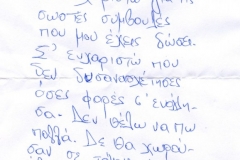 για τις
σωστές συμβουλές
που μου έχεις δώσει.
Σ' ευχαριστώ που
δεν δυσανασχέτησες
όσες φορές σ' ενόχλη-
σα. Δεν θέλω να πω
πολλά. Δε θα χωρού-
σαν σε